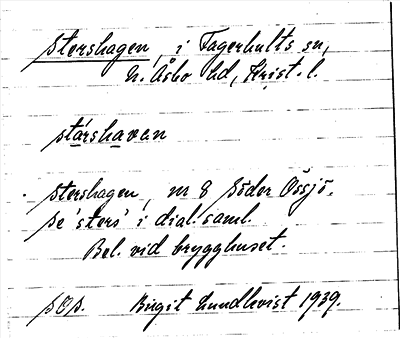 Stershagen, i Fagerhults sn,
N. Åsbo hd, Krist. l.
stárshavan
Stershagen, nr 8 Söder Össjö.
Se 'sters' i dial. saml.
Bel. vid brygghuset.
SOS. Birgit Lundkvist 1939.